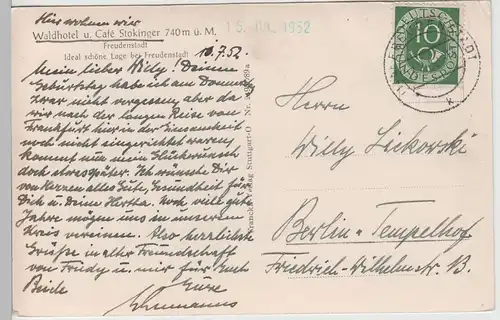 Hier wohnen wir
Waldhotel u. Café Stokinger 740 m ü. M.
Freudenstadt
Ideal schöne Lage bei Freudenstadt
10.7.52.
Mein lieber Willy! Deinen
Geburtstag habe ich am Donnerstag
zwar nicht vergessen aber da
wir nach der langen Reise von
Frankfurt hier in der Einsamkeit
noch nicht eingerichtet waren,
kommt nun mein Glückwunsch
doch etwas später. Ich wünsche Dir
von Herzen alles Gute, Gesundheit für
Dich u. Deine Hertha. Noch viele gute
Jahre mögen uns in unserem
Kreis vereinen. Also herzlichste
Grüße in alter Freundschaft
von Trudy u. mir für Euch
Beide Eure
15. JUL. 1952
Verlag Stuttgart-O Nr.
DEUTSCHE
BUNDESPOST
10
FREUDENSTADT
Herrn
Willy
Berlin-Tempelhof
Friedrich-Wilhelmstr. 13.